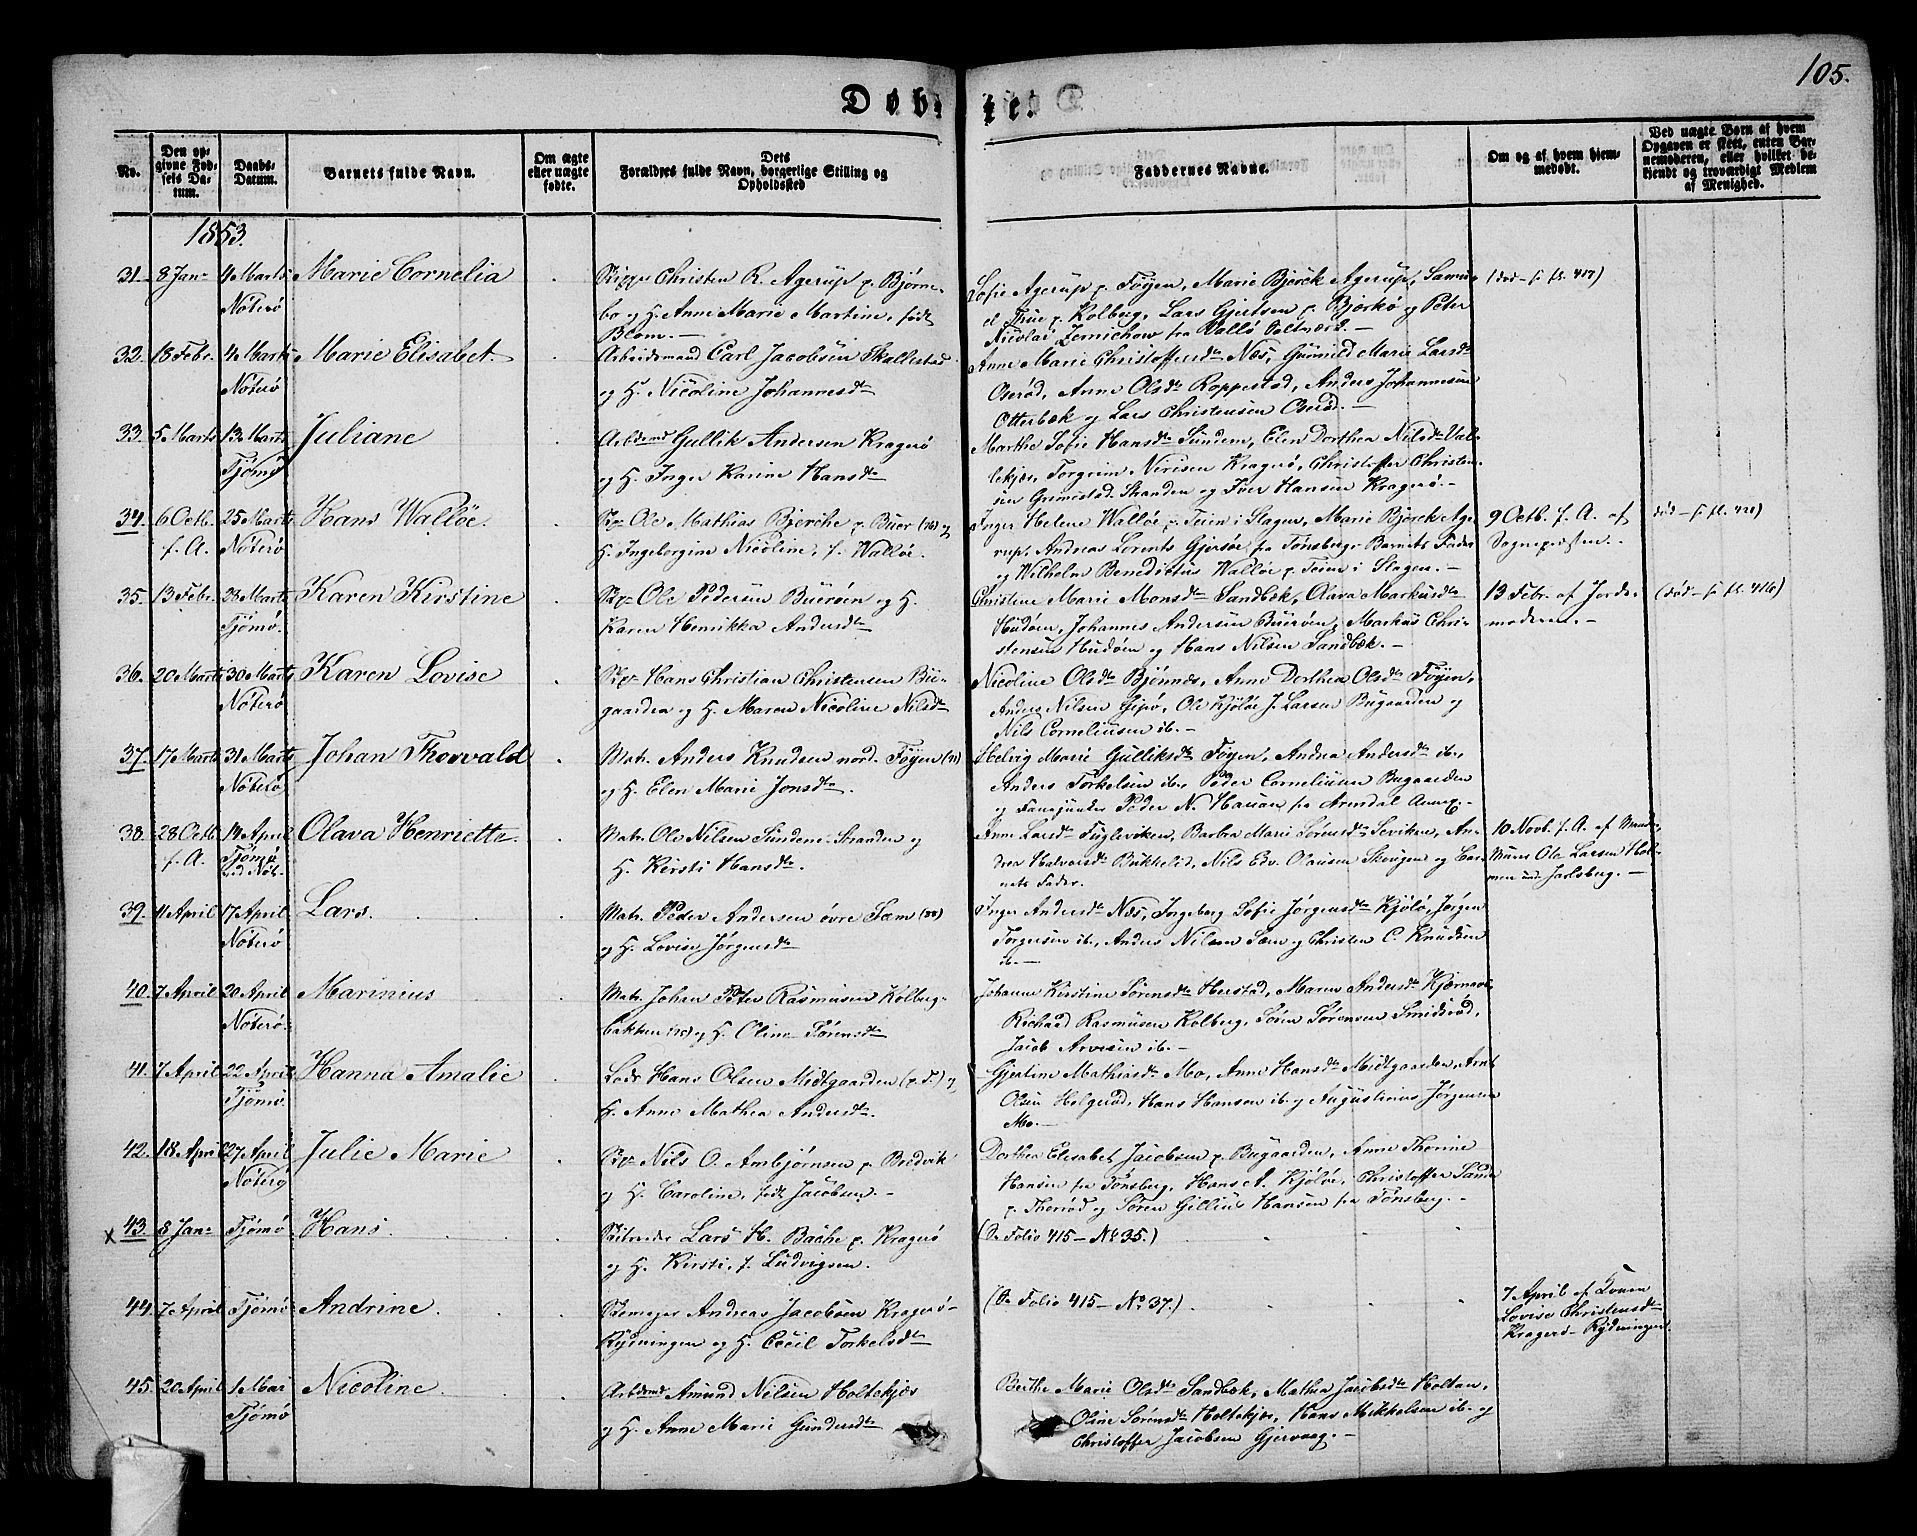 105.
Døbte.
No.
Den opgivne Fødsels Datum.
Daabs-Datum.
Barnets fulde Navn.
Om ægte eller uægte fødte.
Dets Forældres fulde Navn, borgerlige Stilling og Opholdssted
Faddernes Navne.
Om og af hvem hjemmedøbt.
Ved uægte Børn af hvem Opgaven er skeet, enten Barnemoderen, eller hvilket bekjendt og troværdigt Medlem af Menighed.
1853.
31. 8 Jan. 4 Marts Nøterø Marie Cornelia
Christen R. Agerup p. Bjørnebo og H. Anne Marie Martine, født Blom.
Sofie Agerup p. Føyen, Marie Bjerck Agerup, Samuel True p. Kolberg, Lars Gjertsen p. Bjerkø og Peter Nicolai Jernichow fra Vallø Saltværk.
(død - s. fl. 417)
32. 18 Febr. 4 Marts Nøterø Marie Elisabet
Arbeidsmand Carl Jacobsen Skallestad og H. Nicoline Johannesdt.
Anne Marie Christoffersdt. Næs, Gunild Marie Larsdt. Oserød, Anne Olsdt. Roppestad, Anders Johannesen Otterbæk og Lars Christensen Oserød.
33. 5 Marts 13 Marts Tjømø Juliane
Arbdsmd Gullik Andersen Kragerø og H. Inger Karine Hansdt.
Marthe Sofie Hansdt. Sundene, Elen Dorthea Nilsdt. Vallekjær, Torgrim Nirisen Kragerø, Christoffer Christensen Grimestad Stranden og Iver Hansen Kragerø.
34. 6 Octb. f. A. 25 Marts Nøterø Hans Walløe.
Ole Mathias Bjercke p. Buer (26) og H. Ingeborgine Nicoline, f. Walløe.
Inger Helene Walløe p. Teien i Slagen, Marie Bjerck Agerup, Andreas Lorents Gjersøe fra Tønsberg, Barnets Fader og Wilhelm Benedictus Walløe p. Teien i Slagen.
9 Octb. f. A. af Sognepræsten.
død - s. fl. 421)
35. 13 Febr. 28 Marts Tjømø. Karen Kirstine
Ole Pedersen Buerøen og H. Karen Henrikka Andersdt.
Christine Marie Monsdt. Sandbæk, Olava Markusdt. Hudøen, Johannes Andersen Buerøen, Markus Christensen Hudøen og Hans Nilsen Sandbæk.
13 Febr. af Jordemoderen.
(død - s. fl. 416)
36. 20 Marts 30 Marts Nøterø Karen Lovise
Hans Christian Christensen Bugaarden og H. Maren Nicoline Nilsdt.
Nicoline Olsdt. Bjønnes, Anne Dorthea Olsdt. Føyen, Anders Nilsen Gipø, Ole Kjøløe J. Larsen Bugaarden og Nils Corneliusen ib.
37. 17 Marts 31 Marts Nøterø Johan Thorvald
Matr. Anders Knudsen nord. Føyen (31) og H. Elen Marie Jonsdt.
Helvig Marie Gulliksdt. Føyen, Andrea Andersdt. ib., Anders Torkelsen ib., Peder Corneliusen Bugaarden og Fanejunker Peder N. Hansen fra Arendal
38. 28 Octb. f. A. 14 April Tjømø Olava Henriette
Matr. Ole Nilsen Sundene-Stranden og H. Kirsti Hansdt.
Anne Larsdt. Fugleviken, Barbra Marie Sørensdt. Seviken, Andrea Halvorsdt. Bukkelid, Nils Edv. Olausen Skougen og Barnets Fader.
10 Novb. f. A. af Ole Larsen Holmen und. Jarlsberg.
39. 11 April 17 April Nøterø Lars.
Matr. Peder Andersen övre Sæm (38) og H. Lovise Jørgensdt.
Inger Andersdt. Næs, Ingeborg Sofie Jørgensdt. Kjølø, Jørgen Torgersen ib., Anders Nilsen Sæm og Christen C. Knudsen ib.
40. 7 April 20 April Nøterø. Marinius
Matr. Johan Peter Rasmusen Kolberg-bakken og H. Oline Sørensdt.
Johanne Kirstine Sørensdt. Herstad, Maren Andersdt. Richard Rasmusen Kolberg, Søren Sørensen Smidsrød, Jacob Arvesen ib.
41. 7 April 22 April Tjømø. Hanna Amalie
Lods Hans Olsen Midtgaarden (p. T.) og H. Anne Mathea Andersdt.
Gjertine Mathiasdt. Mo, Anne Hansdt. Midtgaarden, Arnt Olsen Holgerød, Hans Hansen ib. og Augustinus Jørgensen Mo.
42. 18 April 27 April Nøterø Julie Marie
Nils O. Ambjørnsen p. Bredvik og H. Caroline, født Jacobsen.
Dorthea Elisabet Jacobsen p. Bugaarden, Anne Thorine Hansen fra Tønsberg, Hans A. Kjøløe, Christoffer Sande p. Therød og Søren Gillius Hansen fra Tønsberg.
x 43. 8 Jan. Tjømø Hans.
Lars H. Bache p. Kragerø og H. Kirsti, f. Ludvigsen.
(Se Folio 415 - No 35.)
44. 7 April Tjømø Andrine.
Andreas Jacobsen Kragerø-Rydningen og H. Cecil Torkelsdt.
(Se Folio 415 - No 37.)
7 April af Konen Lovise Christensdt. Kragerø-Rydningen.
45. 20 April 1 Mai Tjømø Nicoline
Arbdsmd Amund Nilsen Holtekjær og H. Anne Marie Gundersdt.
Berthe Marie Olsdt. Sandbæk, Mathea Jacobsdt. Holtan, Oline Sørensdt. Holtekjær, Hans Mikkelsen ib. og Christoffer Jacobsen Gjervaag.